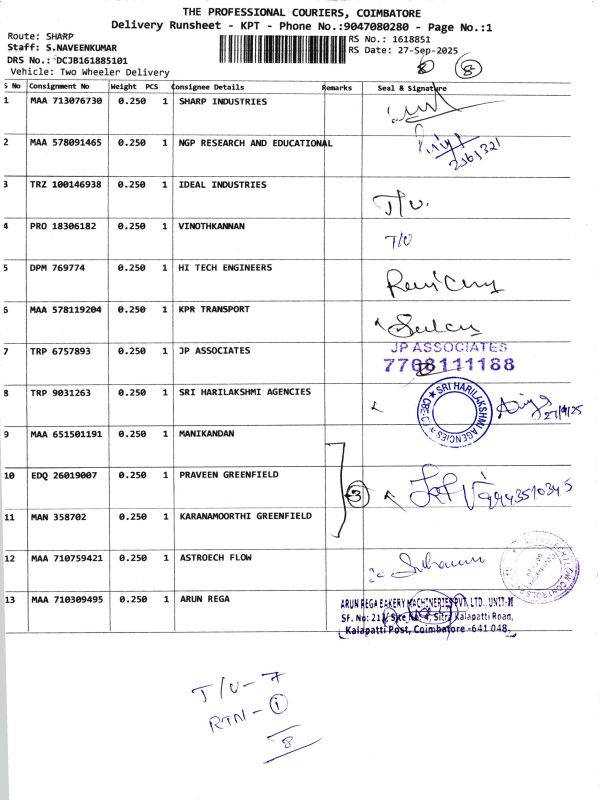 THE PROFESSIONAL COURIERS, COIMBATORE
Delivery Runsheet - KPT - Phone No.:9047080280 - Page No.:1
Route: SHARP
RS No.: 1618851
Staff: S.NAVEENKUMAR
RS Date: 27-Sep-2025
DRS No.: DCJB161885101
8 8
Vehicle: Two Wheeler Delivery
S No Consignment No Weight PCS Consignee Details Remarks Seal & Signature
1 MAA 713076730 0.250 1 SHARP INDUSTRIES
2 MAA 578091465 0.250 1 NGP RESEARCH AND EDUCATIONAL
3 TRZ 100146938 0.250 1 IDEAL INDUSTRIES T/U.
4 PRO 18306182 0.250 1 VINOTHKANNAN T/U
5 DPM 769774 0.250 1 HI TECH ENGINEERS
6 MAA 578119204 0.250 1 KPR TRANSPORT
7 TRP 6757893 0.250 1 JP ASSOCIATES JP ASSOCIATES
7708111188
8 TRP 9031263 0.250 1 SRI HARILAKSHMI AGENCIES SRI HARILAKSHMI AGENCIES CBE
27/9/25
9 MAA 651501191 0.250 1 MANIKANDAN
10 EDQ 26019007 0.250 1 PRAVEEN GREENFIELD
3
11 MAN 358702 0.250 1 KARANAMOORTHI GREENFIELD
12 MAA 710759421 0.250 1 ASTROECH FLOW
13 MAA 710309495 0.250 1 ARUN REGA ARUN REGA BAKERY MACHINERIES PVT. LTD., UNIT-II
Kalapatti Road,
Kalapatti Post, Coimbatore -641 048.
T/U - 7
RTN - 1
8